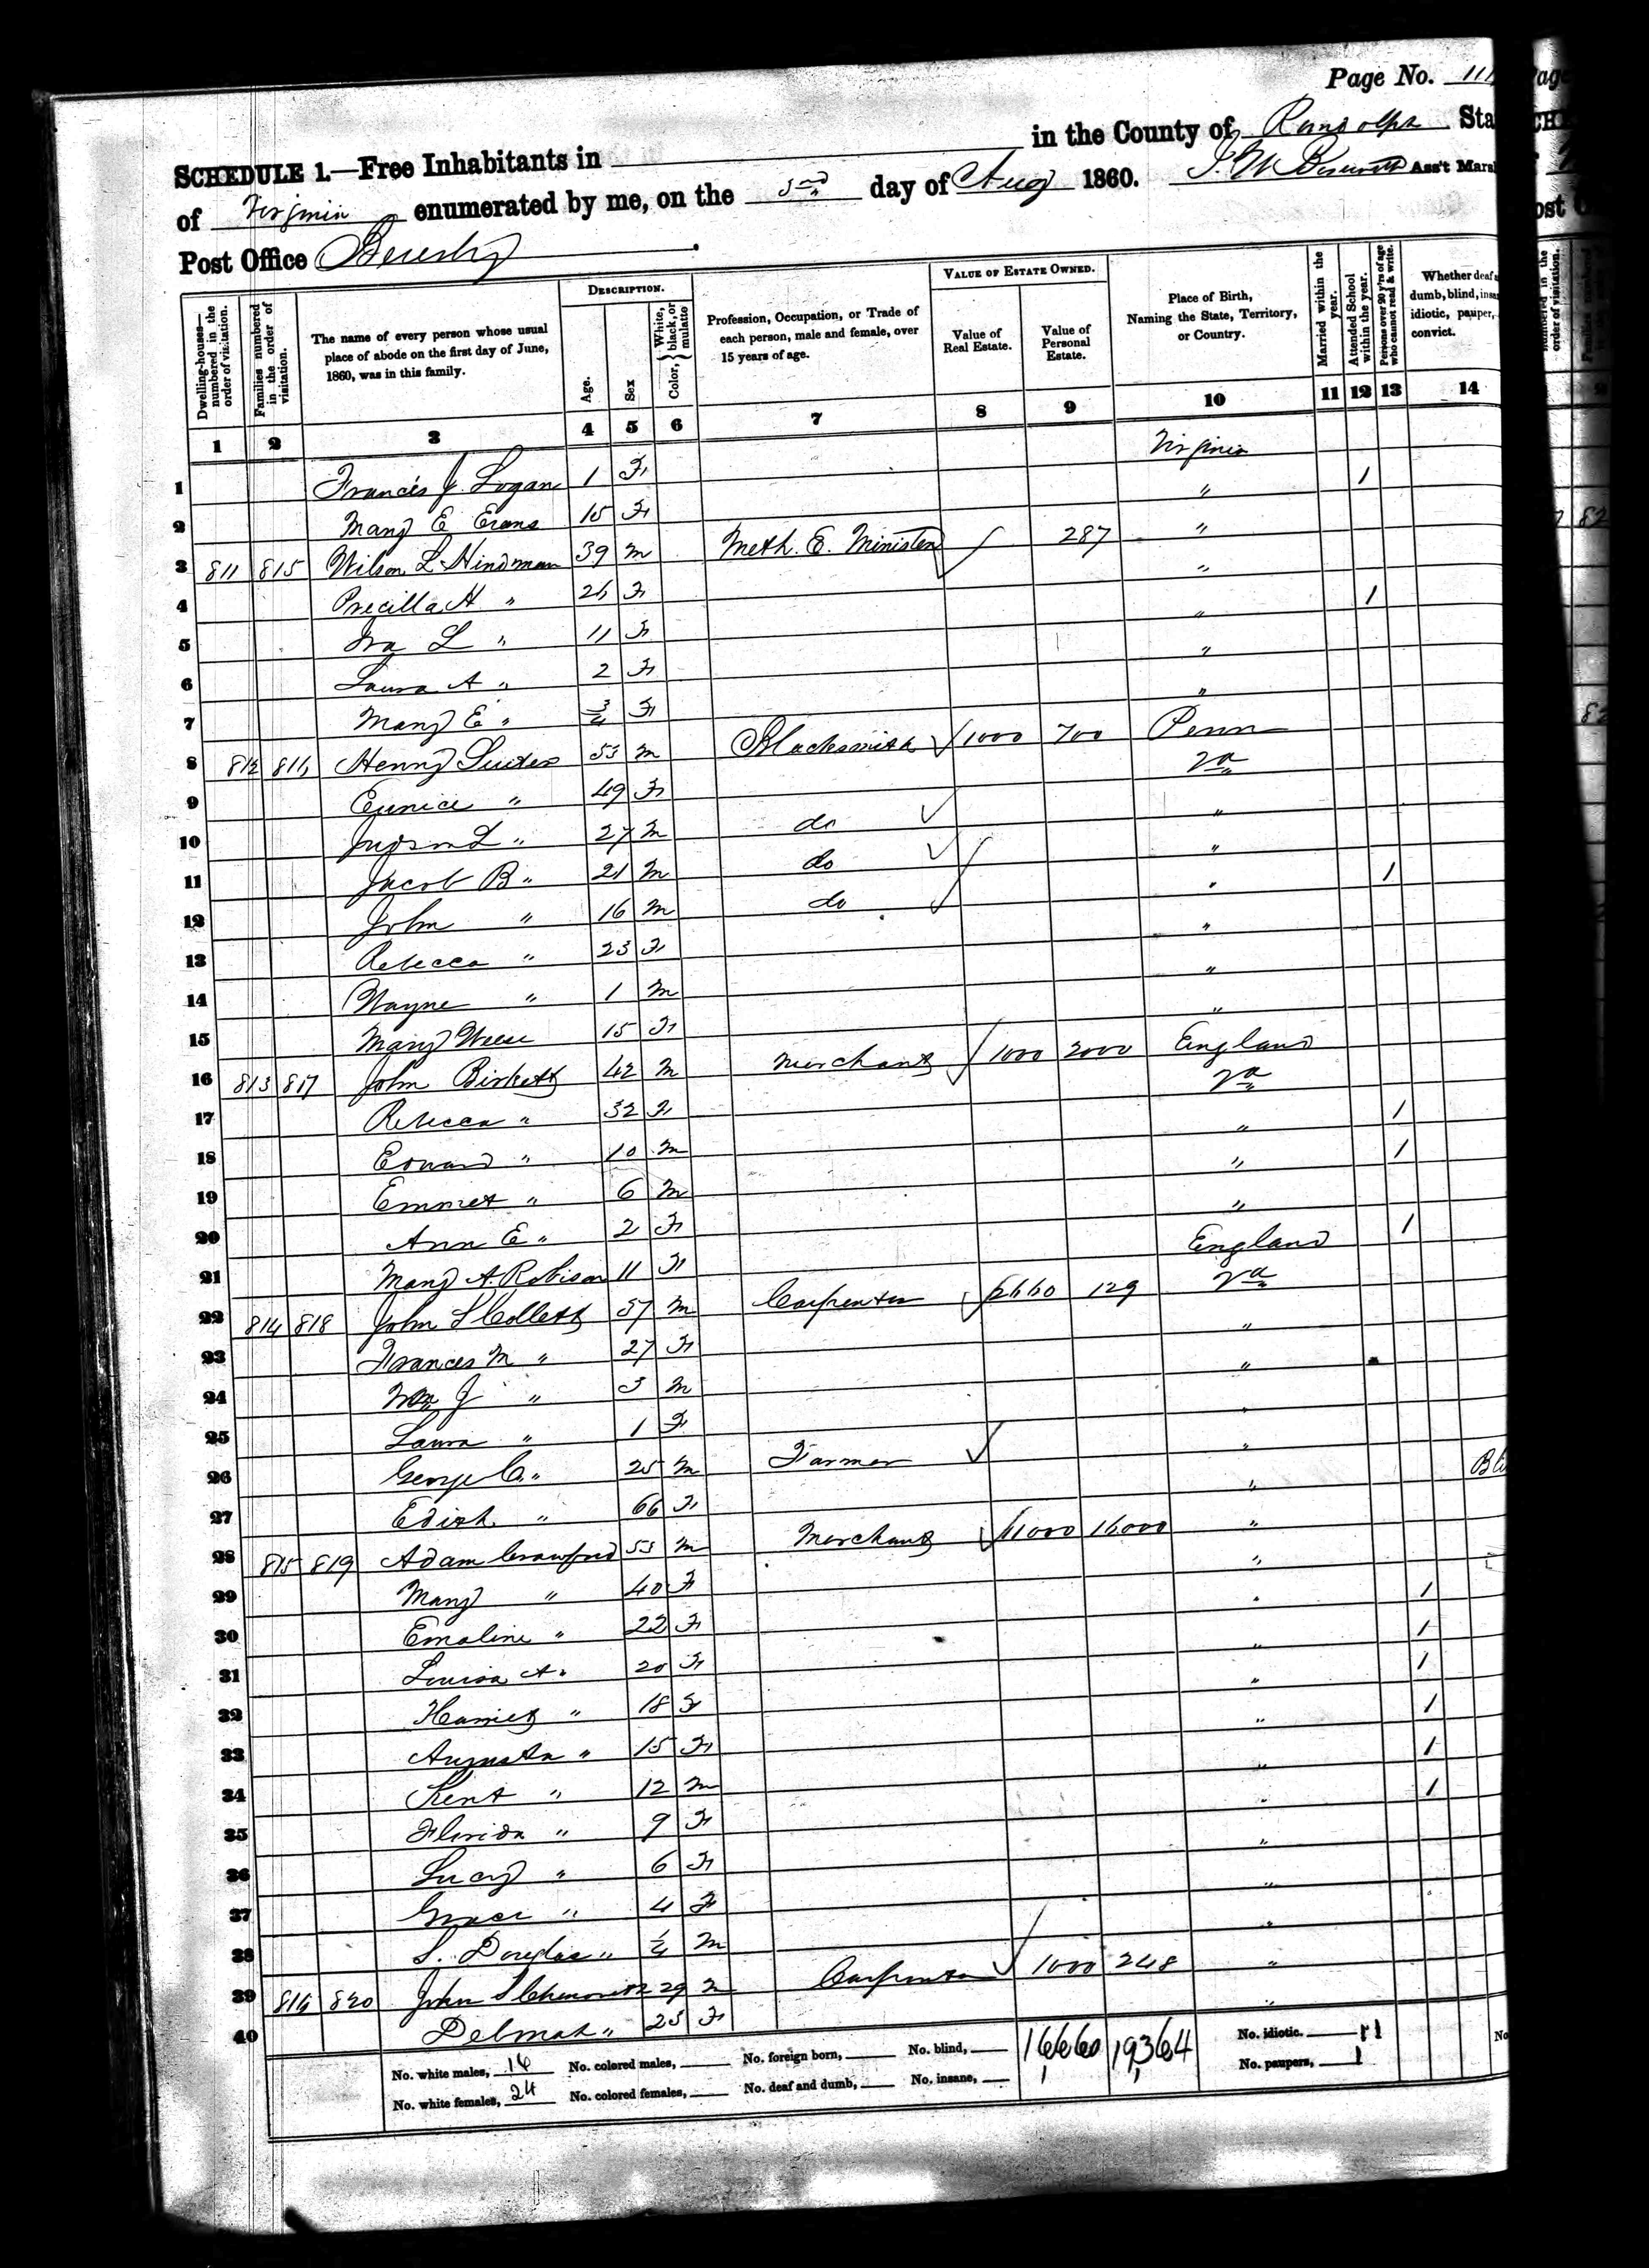 Page No. 111
SCHEDULE 1.—Free Inhabitants in in the County of Randolph Sta
of Virginia enumerated by me, on the 3rd day of Aug 1860. Ass't Mars
Post Office Beverly
Dwelling-houses—numbered in the order of visitation.
Families numbered in the order of visitation.
The name of every person whose usual place of abode on the first day of June, 1860, was in this family.
DESCRIPTION.
Age.
Sex
Color, White, black, or mulatto
Profession, Occupation, or Trade of each person, male and female, over 15 years of age.
VALUE OF ESTATE OWNED.
Value of Real Estate.
Value of Personal Estate.
Place of Birth, Naming the State, Territory, or Country.
Married within the year.
Attended School within the year.
Persons over 20 y'rs of age who cannot read & write.
Whether deaf dumb, blind, insa idiotic, pauper, convict.
1 2 3 4 5 6 7 8 9 10 11 12 13 14
1 Francis J. Logan 1 F Virginia
2 Mary E Evans 15 F " 1
3 811 815 Wilson L Hindman 39 m Meth. E. Minister 287 "
4 Precilla H " 26 F "
5 Ira L " 11 F " 1
6 Laura A " 2 F "
7 Mary E " 3/4 F "
8 812 816 Henry Suiter 53 m Blacksmith 1000 700 Penn
9 Eunice " 49 F Va
10 Judson L " 27 m do "
11 Jacob B " 21 m do "
12 John " 16 m do " 1
13 Rebecca " 23 F "
14 Wayne " 1 m "
15 Mary Weese 15 F "
16 813 817 John Birkett 42 m Merchant 1000 2000 England
17 Rebecca " 32 F Va
18 Edward " 10 m " 1
19 Emmet " 6 m " 1
20 Ann E " 2 F "
21 Mary A. Robison 11 F England 1
22 814 818 John S Collett 37 m Carpenter 2660 129 Va
23 Frances M " 27 F "
24 Wm J " 3 m "
25 Laura " 1 F "
26 George C. " 25 m Farmer "
27 Edith " 66 F "
28 815 819 Adam Crawford 53 m Merchant 11000 16000 "
29 Mary " 40 F "
30 Emaline " 22 F " 1
31 Louisa A " 20 F " 1
32 Harriet " 18 F " 1
33 Augusta " 15 F " 1
34 Kent " 12 m " 1
35 Florida " 9 F " 1
36 Lucy " 6 F "
37 Grace " 4 F "
38 S. Douglas " 1/4 m "
39 816 820 John S Chenoweth 29 m Carpenter 1000 248 "
40 Delmah " 25 F "
No. white males, 16 No. colored males, No. foreign born, No. blind, 16,660 19,364 No. idiotic. 11
No. white females, 24 No. colored females, No. deaf and dumb, No. insane, No. paupers, 1